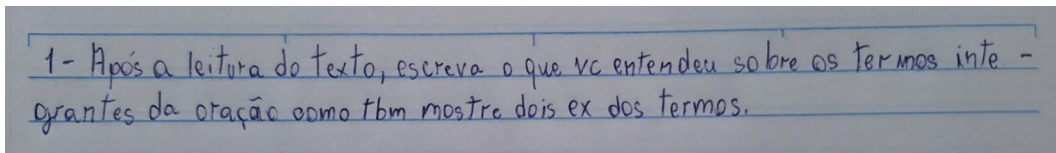 1- Após a leitura do texto, escreva o que vc entendeu sobre os termos inte -
grantes da oração como tbm mostre dois ex dos termos.